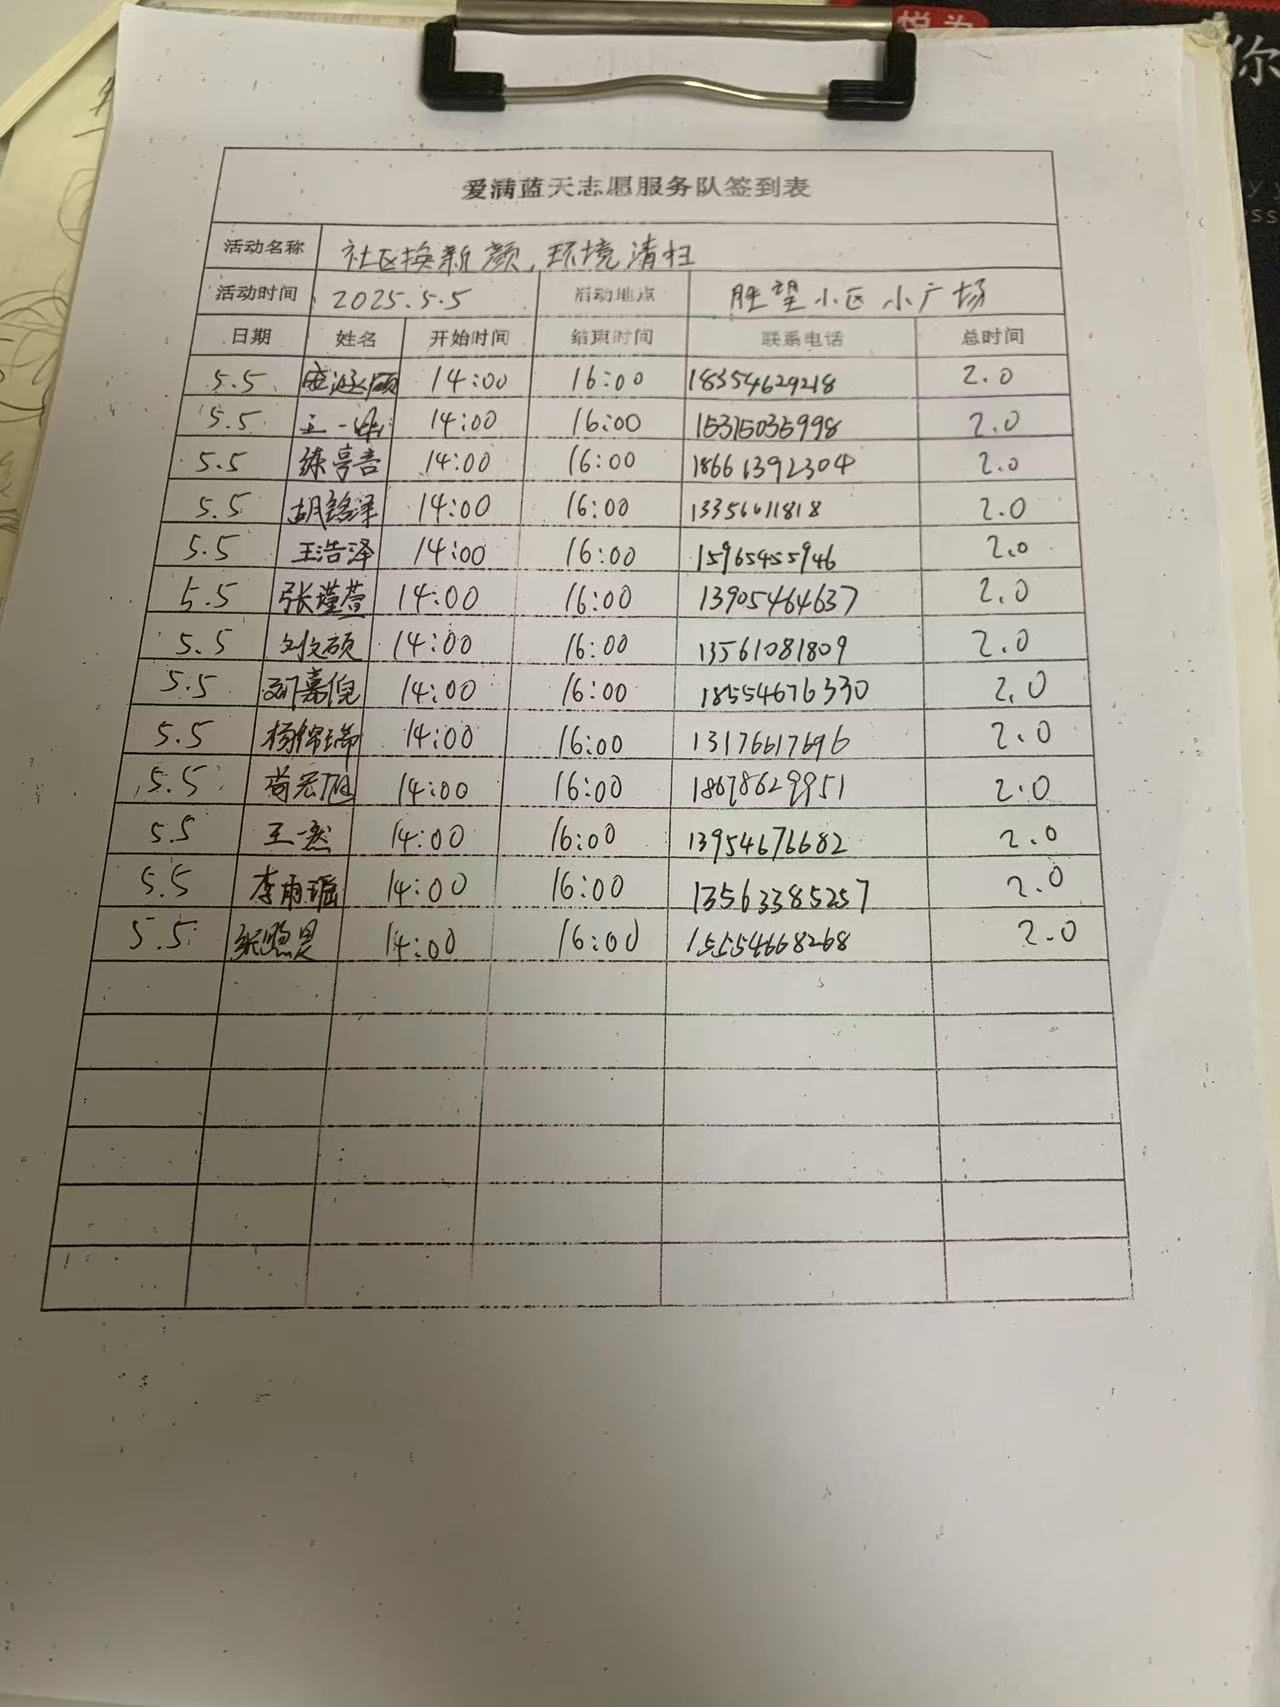 悦为
你
爱满蓝天志愿服务队签到表
活动名称 社区换新颜,环境清扫
活动时间 2025.5.5 活动地点 胜望小区小广场
日期 姓名 开始时间 结束时间 联系电话 总时间
5.5 14:00 16:00 18354629218 2.0
5.5 王一 14:00 16:00 15315035998 2.0
5.5 14:00 16:00 18661392304 2.0
5.5 胡铭泽 14:00 16:00 13356611818 2.0
5.5 王浩泽 14:00 16:00 15965455946 2.0
5.5 张瑾萱 14:00 16:00 13905464637 2.0
5.5 刘文硕 14:00 16:00 13561081809 2.0
5.5 嘉倪 14:00 16:00 18554676330 2.0
5.5 杨锦瑞 14:00 16:00 13176617696 2.0
5.5 苟宏旭 14:00 16:00 18678629951 2.0
5.5 王一 14:00 16:00 13954676682 2.0
5.5 李雨瑶 14:00 16:00 13563385257 2.0
5.5 张 昊 14:00 16:00 15554668268 2.0